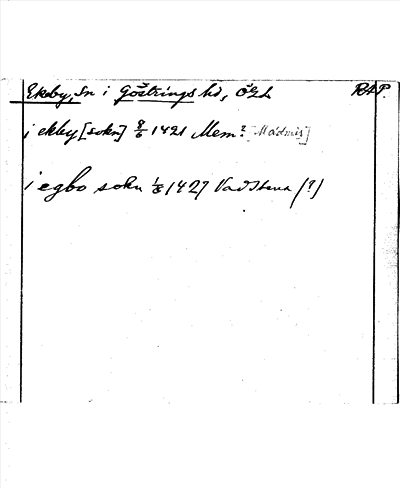 Ekeby, sn i Göstrings hd, Ögl RAP.
i ekby [sokn] 8/6 1421 Mem? [Mädmis]
i egbo sokn 1/8 1427 Vadstena (?)